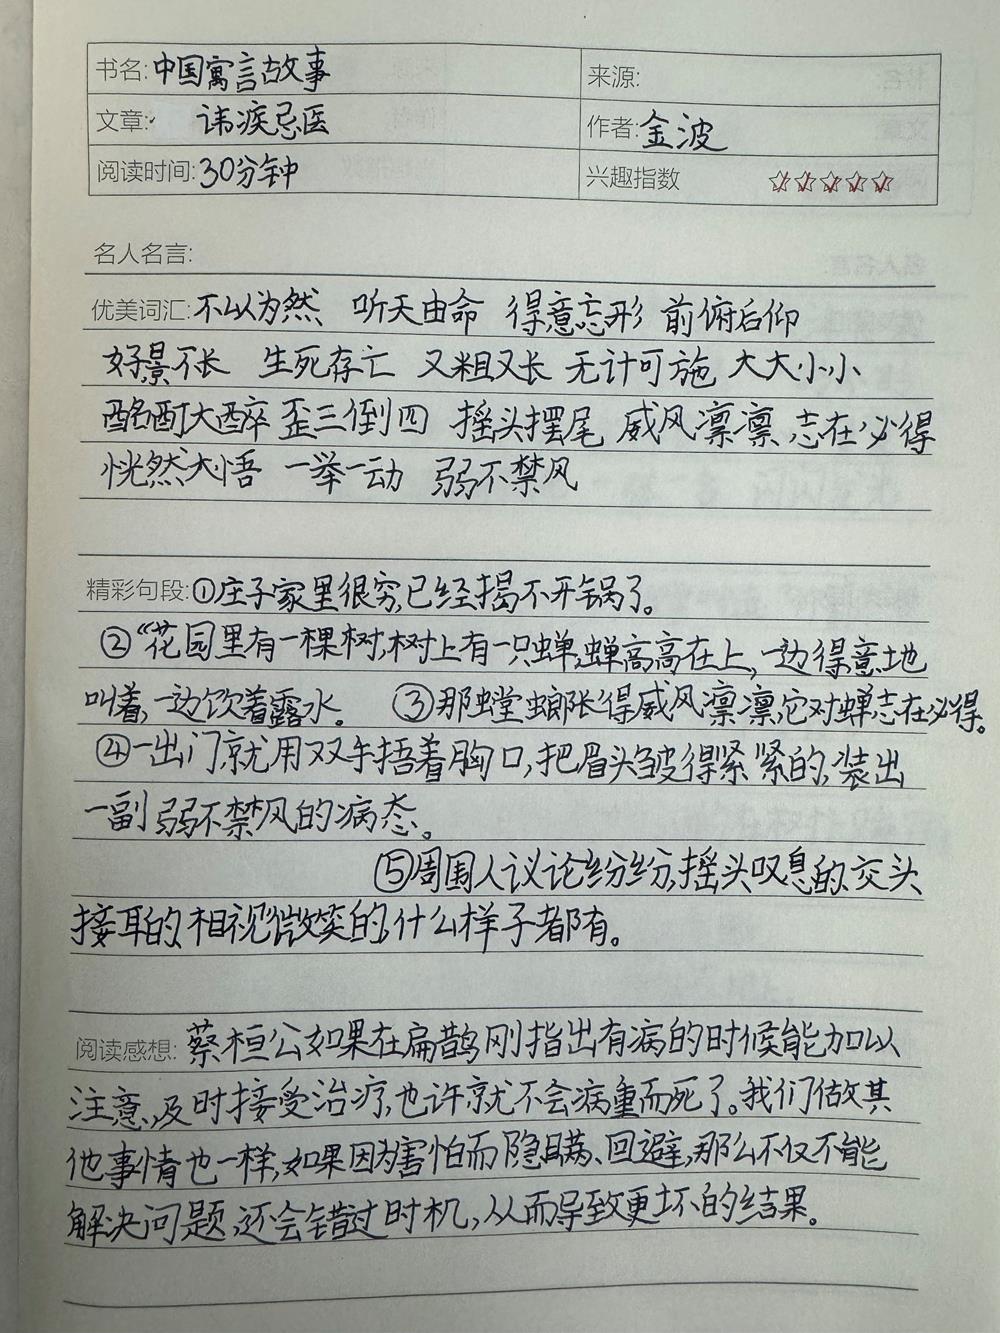 书名:中国寓言故事 来源:
文章: 讳疾忌医 作者:金波
阅读时间:30分钟 兴趣指数 ☆☆☆☆☆
名人名言:
优美词汇:不以为然 听天由命 得意忘形 前俯后仰
好景不长 生死存亡 又粗又长 无计可施 大大小小
酩酊大醉 歪三倒四 摇头摆尾 威风凛凛 志在必得
恍然大悟 一举一动 弱不禁风
精彩句段:①庄子家里很穷,已经揭不开锅了。
②“花园里有一棵树,树上有一只蝉,蝉高高在上,一边得意地
叫着,一边饮着露水。 ③那螳螂张得威风凛凛,它对蝉志在必得。
④一出门,就用双手捂着胸口,把眉头皱得紧紧的,装出
一副弱不禁风的病态。
⑤周围人议论纷纷,摇头叹息的、交头
接耳的、相视微笑的,什么样子都有。
阅读感想:蔡桓公如果在扁鹊刚指出有病的时候能加以
注意、及时接受治疗,也许就不会病重而死了。我们做其
他事情也一样,如果因为害怕而隐瞒、回避,那么不仅不能
解决问题,还会错过时机,从而导致更坏的结果。